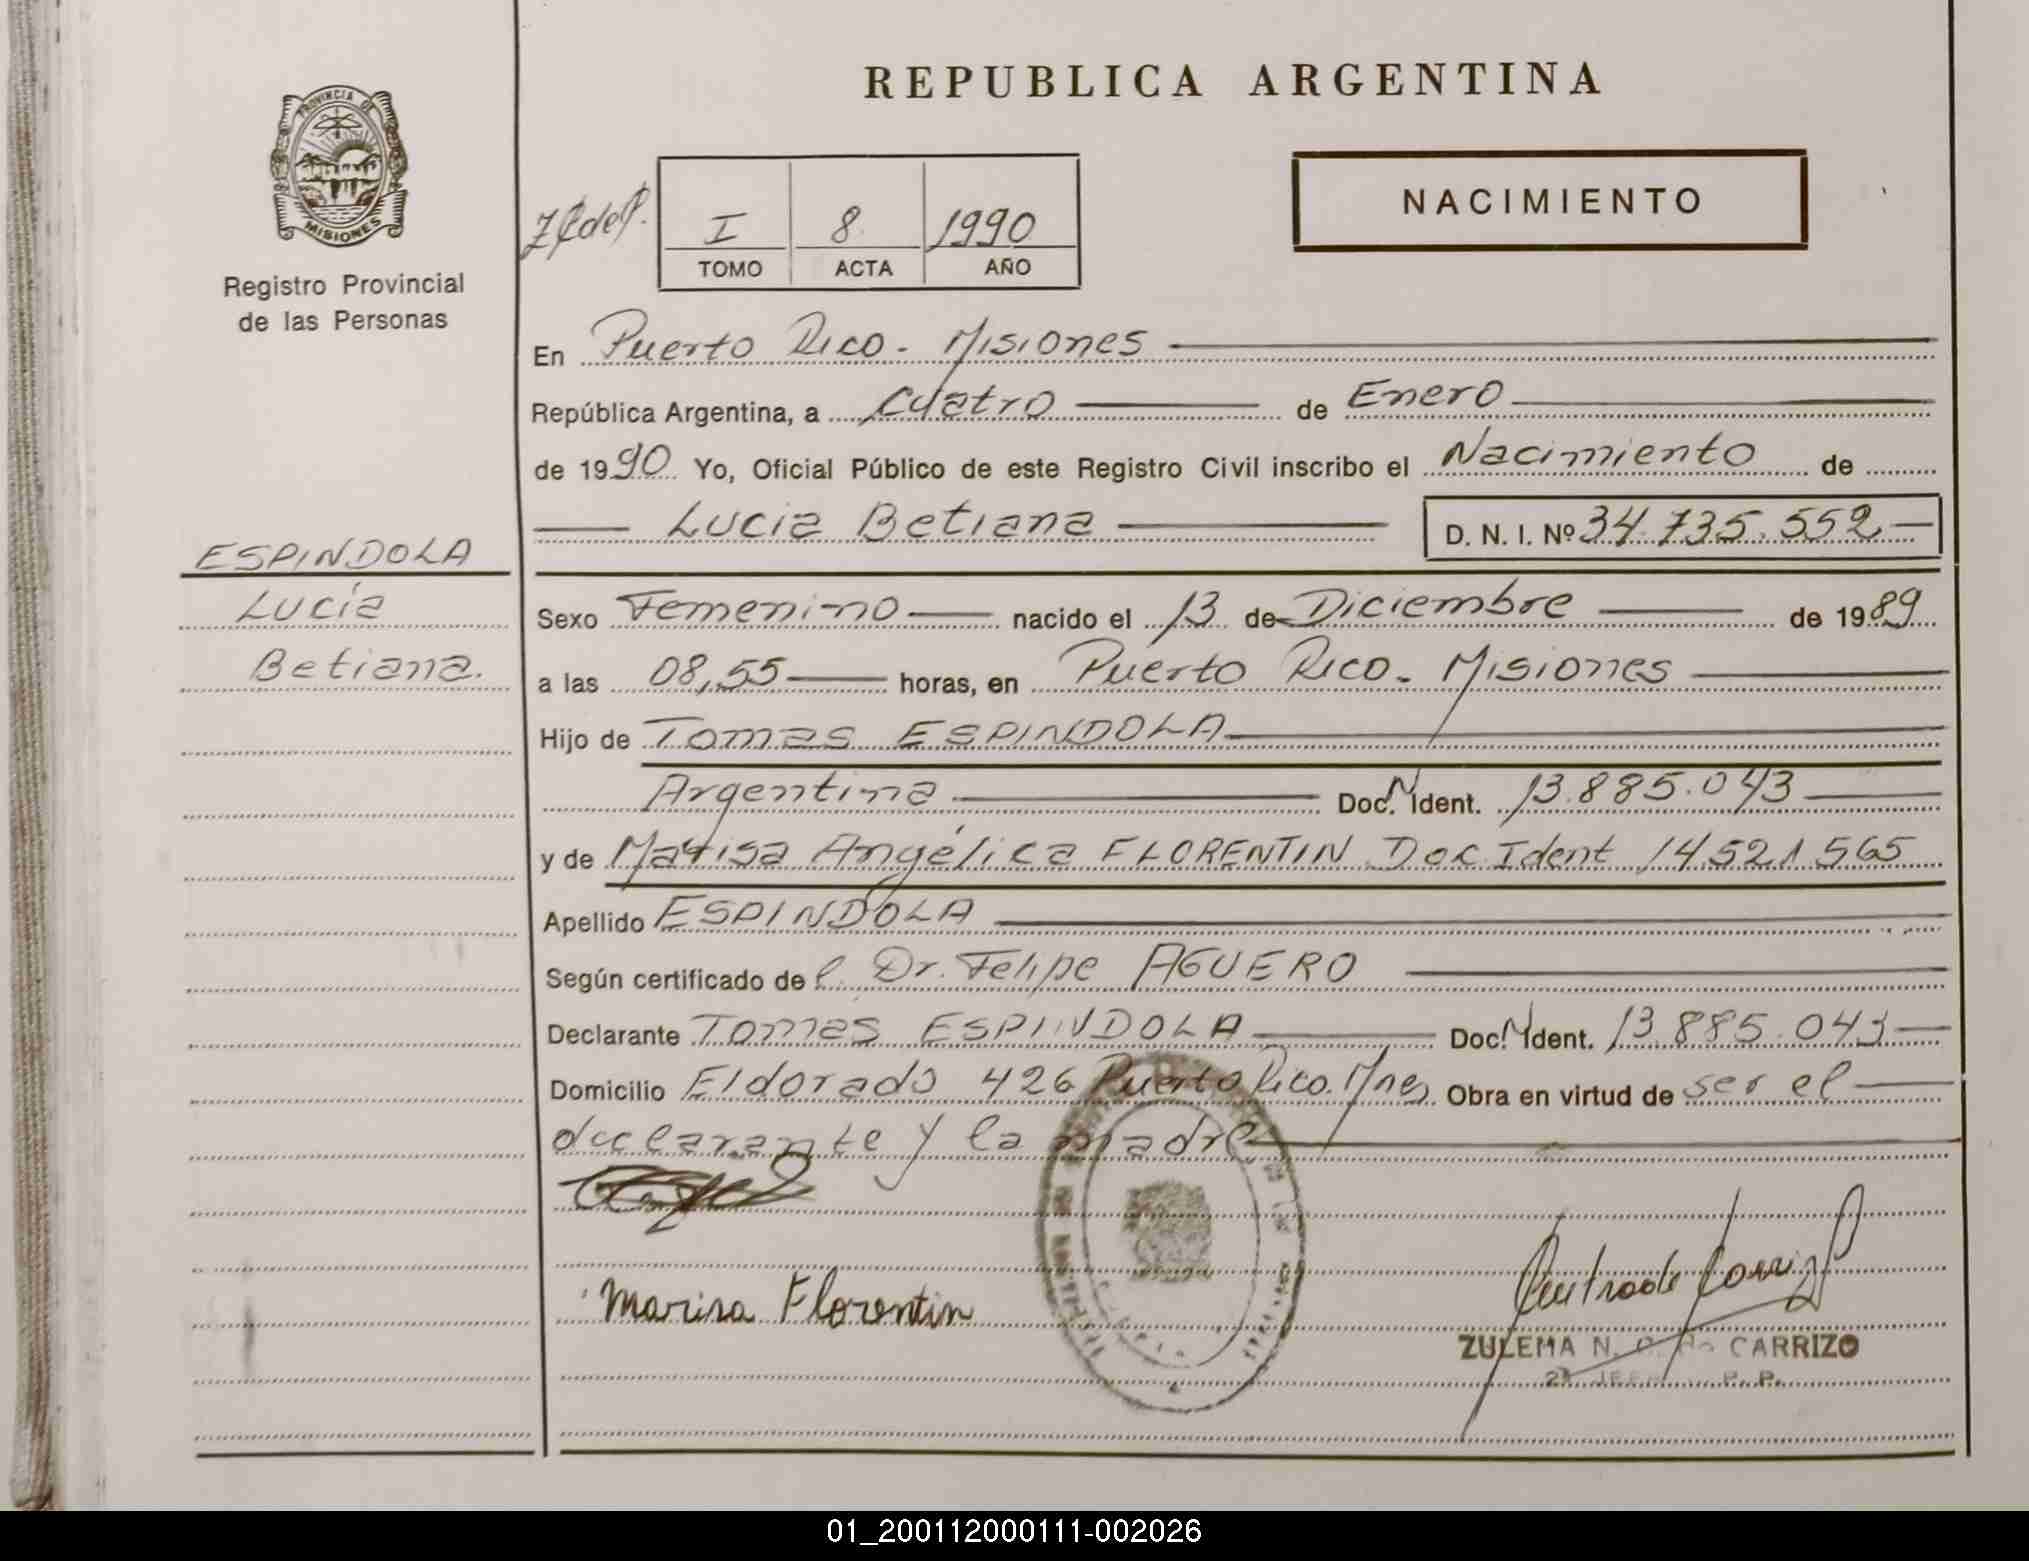 REPUBLICA ARGENTINA
PROVINCIA DE
MISIONES
Registro Provincial
de las Personas
I 8 1990
TOMO ACTA AÑO
NACIMIENTO
En Puerto Rico - Misiones
República Argentina, a Cuatro de Enero
de 1990 Yo, Oficial Público de este Registro Civil inscribo el Nacimiento de
Lucia Betiana D. N. I. Nº 34.735.552
ESPINDOLA
Lucía
Betiana.
Sexo Femenino nacido el 13 de Diciembre de 1989
a las 08,55 horas, en Puerto Rico - Misiones
Hijo de Tomas ESPINDOLA
Argentina Doc. N Ident. 13.885.043
y de Marisa Angélica FLORENTIN Doc Ident 14.521.565
Apellido ESPINDOLA
Según certificado del Dr. Felipe AGUERO
Declarante Tomas ESPINDOLA Doc. N Ident. 13.885.043
Domicilio Eldorado 426 Puerto Rico. Mnes Obra en virtud de ser el
declarante y la madre
Marisa Florentin
ZULEMA N. CARRIZO
01_200112000111-002026